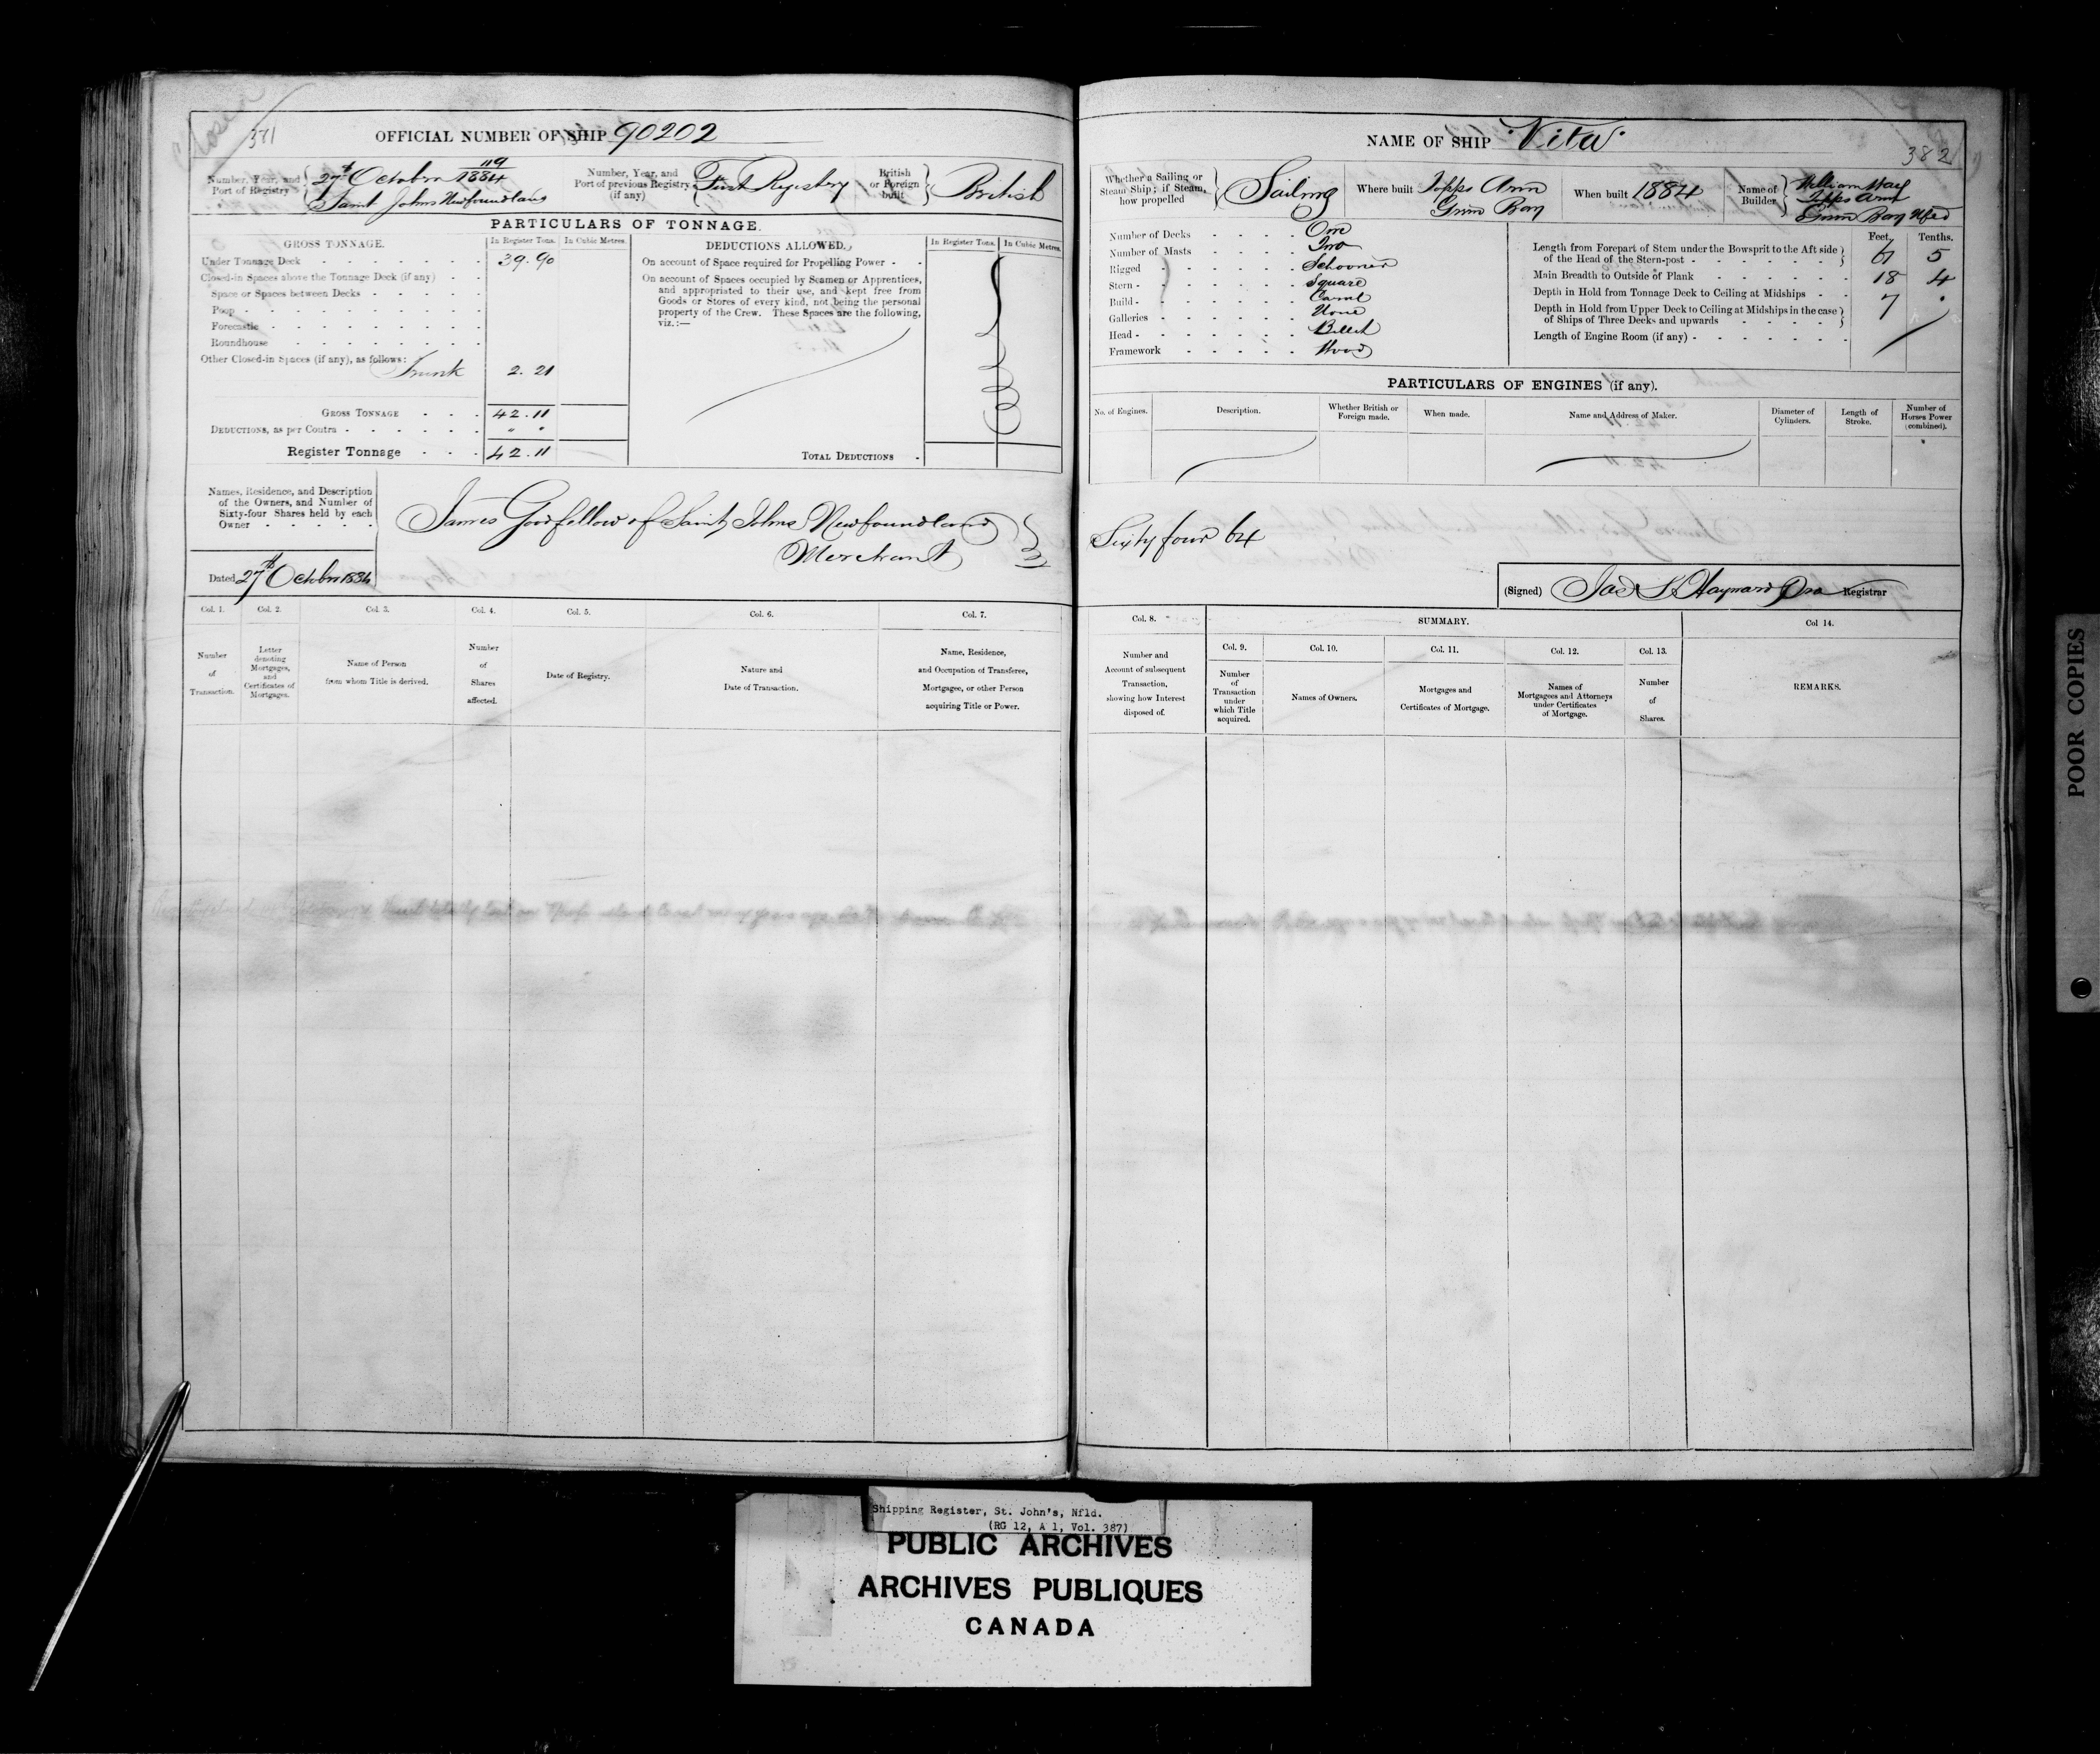 Closed
381
OFFICIAL NUMBER OF SHIP 90202
Number, Year, and Port of Registry
119
27th October 1884
Saint Johns Newfoundland
Number, Year, and Port of previous Registry (if any)
First Registry
British or Foreign built
British
PARTICULARS OF TONNAGE.
GROSS TONNAGE.
In Register Tons.
In Cubic Metres.
Under Tonnage Deck 39.90
Closed-in Spaces above the Tonnage Deck (if any)
Space or Spaces between Decks
Poop
Forecastle
Roundhouse
Other Closed-in Spaces (if any), as follows:
Trunk 2.21
GROSS TONNAGE 42.11
DEDUCTIONS, as per Contra " "
Register Tonnage 42.11
DEDUCTIONS ALLOWED.
In Register Tons.
In Cubic Metres.
On account of Space required for Propelling Power
On account of Spaces occupied by Seamen or Apprentices,
and appropriated to their use, and kept free from
Goods or Stores of every kind, not being the personal
property of the Crew. These Spaces are the following,
viz.:—
TOTAL DEDUCTIONS
Names, Residence, and Description
of the Owners, and Number of
Sixty-four Shares held by each
Owner
James Goodfellow of Saint Johns Newfoundland
Merchant
Dated 27th October 1884
Col. 1.
Number
of
Transaction.
Col. 2.
Letter
denoting
Mortgages,
and
Certificates of
Mortgages.
Col. 3.
Name of Person
from whom Title is derived.
Col. 4.
Number
of
Shares
affected.
Col. 5.
Date of Registry.
Col. 6.
Nature and
Date of Transaction.
Col. 7.
Name, Residence,
and Occupation of Transferee,
Mortgagee, or other Person
acquiring Title or Power.
NAME OF SHIP "Vita"
382
Whether a Sailing or
Steam Ship; if Steam,
how propelled
Sailing
Where built
Green Bay
When built 1884
Name of
Builder
William
Green Bay Nfld
Number of Decks One
Number of Masts Two
Rigged Schooner
Stern Square
Build Carvel
Galleries None
Head Billet
Framework Wood
Feet.
Tenths.
Length from Forepart of Stem under the Bowsprit to the Aft side
of the Head of the Stern-post 61 5
Main Breadth to Outside of Plank 18 4
Depth in Hold from Tonnage Deck to Ceiling at Midships 7 "
Depth in Hold from Upper Deck to Ceiling at Midships in the case
of Ships of Three Decks and upwards
Length of Engine Room (if any)
PARTICULARS OF ENGINES (if any).
No. of Engines.
Description.
Whether British or
Foreign made.
When made.
Name and Address of Maker.
Diameter of
Cylinders.
Length of
Stroke.
Number of
Horses Power
(combined).
Sixty four 64
(Signed) Jas S Hayward Registrar
Col. 8.
Number and
Account of subsequent
Transaction,
showing how Interest
disposed of.
SUMMARY.
Col. 9.
Number
of
Transaction
under
which Title
acquired.
Col. 10.
Names of Owners.
Col. 11.
Mortgages and
Certificates of Mortgage.
Col. 12.
Names of
Mortgagees and Attorneys
under Certificates
of Mortgage.
Col. 13.
Number
of
Shares.
Col 14.
REMARKS.
POOR COPIES
Shipping Register, St. John's, Nfld.
(RG 12, A 1, Vol. 387)
PUBLIC ARCHIVES
ARCHIVES PUBLIQUES
CANADA